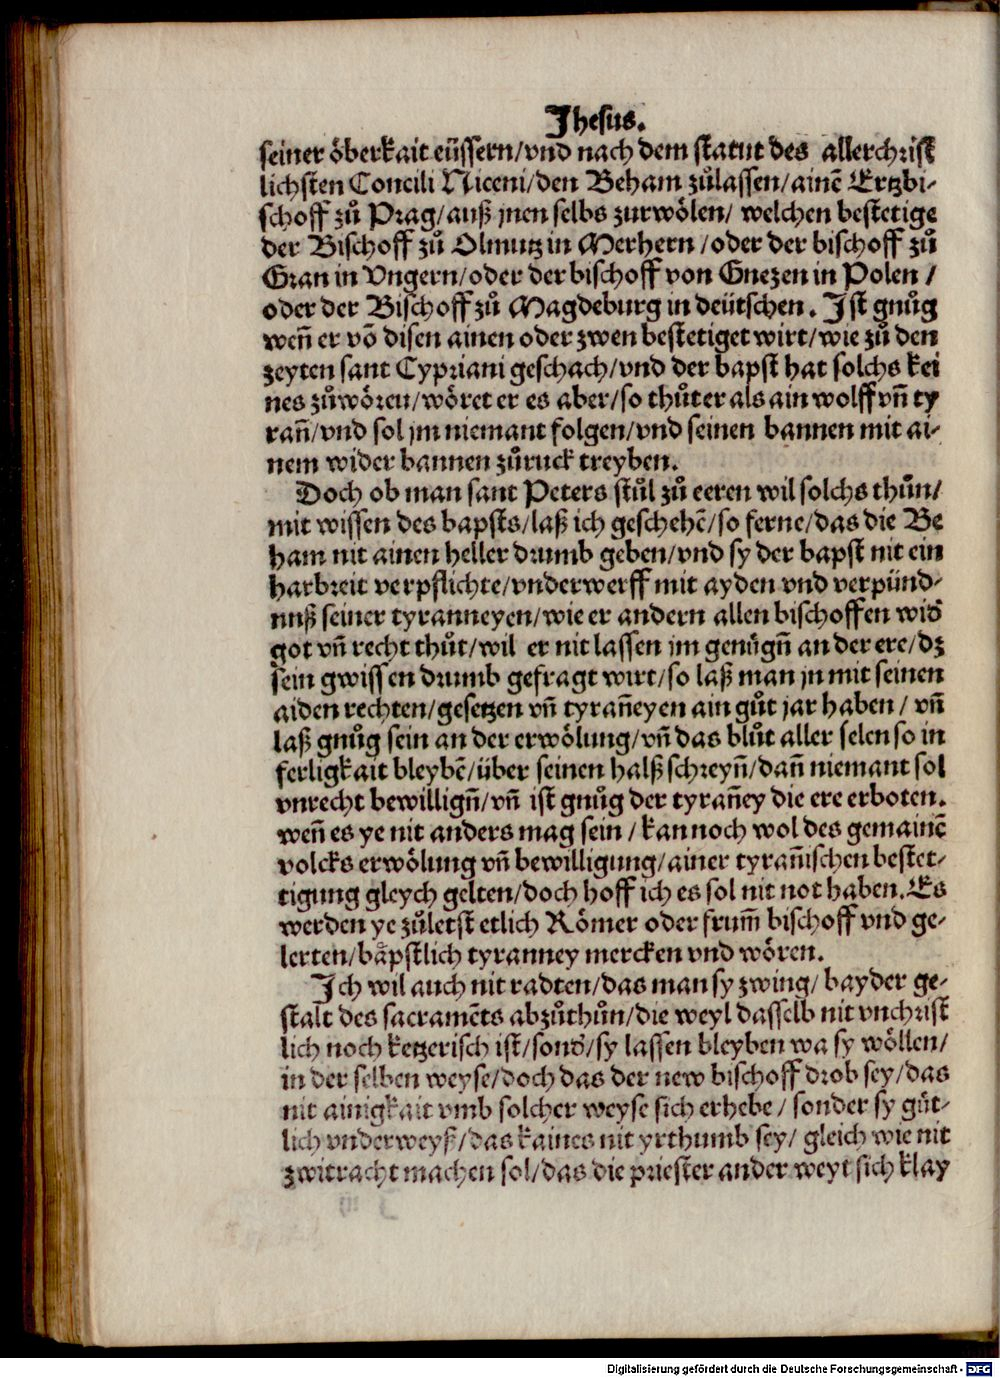 Jhesus.
seiner öberkait eüssern/vnd nach dem statut des allerchrist
lichsten Concili Niceni/den Beham zůlassen/ainē Ertzbi-
schoff zů Prag/auß jnen selbs zurwölen/ welchen bestetige
der Bischoff zů Olmutz in Merhern/oder der bischoff zů
Gran in Vngern/oder der bischoff von Gnezen in Polen/
oder der Bischoff zů Magdeburg in deütschen. Ist gnůg
wen̄ er vō disen ainen oder zwen bestetiget wirt/wie zů den
zeyten sant Cypriani geschach/vnd der bapst hat solchs kei
nes zůwören/wöret er es aber/so thůt er als ain wolff vn̄ ty
ran̄/vnd sol jm niemant folgen/vnd seinen bannen mit ai-
nem wider bannen zůruck treyben.
Doch ob man sant Peters stůl zů eeren wil solchs thůn/
mit wissen des bapsts/laß ich geschehē/so ferne/das die Be
ham nit ainen heller drumb geben/vnd sy der bapst nit ein
harbreit verpflichte/vnderwerff mit ayden vnd verpünd-
nuß seiner tyranneyen/wie er andern allen bischoffen wid̄
got vn̄ recht thůt/wil er nit lassen jm genůgn̄ an der ere/dz
sein gwissen drumb gefragt wirt/so laß man jn mit seinen
aiden rechten/gesetzen vn̄ tyran̄eyen ain gůt jar haben/ vn̄
laß gnůg sein an der erwölung/vn̄ das blůt aller selen so in
ferligkait bleybē/über seinen halß schreyn̄/dan̄ niemant sol
vnrecht bewillign̄/vn̄ ist gnůg der tyran̄ey die ere erboten.
wen̄ es ye nit anders mag sein/kan noch wol des gemainē
volcks erwölung vn̄ bewilligung/ainer tyran̄ischen bestet-
tigung gleych gelten/doch hoff ich es sol nit not haben. Es
werden ye zůletst etlich Römer oder frum̄ bischoff vnd ge-
lerten/bäpstlich tyranney mercken vnd wören.
Ich wil auch nit radten/das man sy zwing/bayder ge-
stalt des sacramēts abzůthůn/die weyl dasselb nit vnchrist
lich noch ketzerisch ist/sond̄/sy lassen bleyben wa sy wöllen/
in der selben weyse/doch das der new bischoff drob sey/das
nit ainigkait vmb solcher weyse sich erhebe/ sonder sy güt-
lich vnderweyß/das kaines nit yrthumb sey/ gleich wie nit
zwitracht machen sol/das die priester ander weyt sich klay
Digitalisierung gefördert durch die Deutsche Forschungsgemeinschaft - DFG